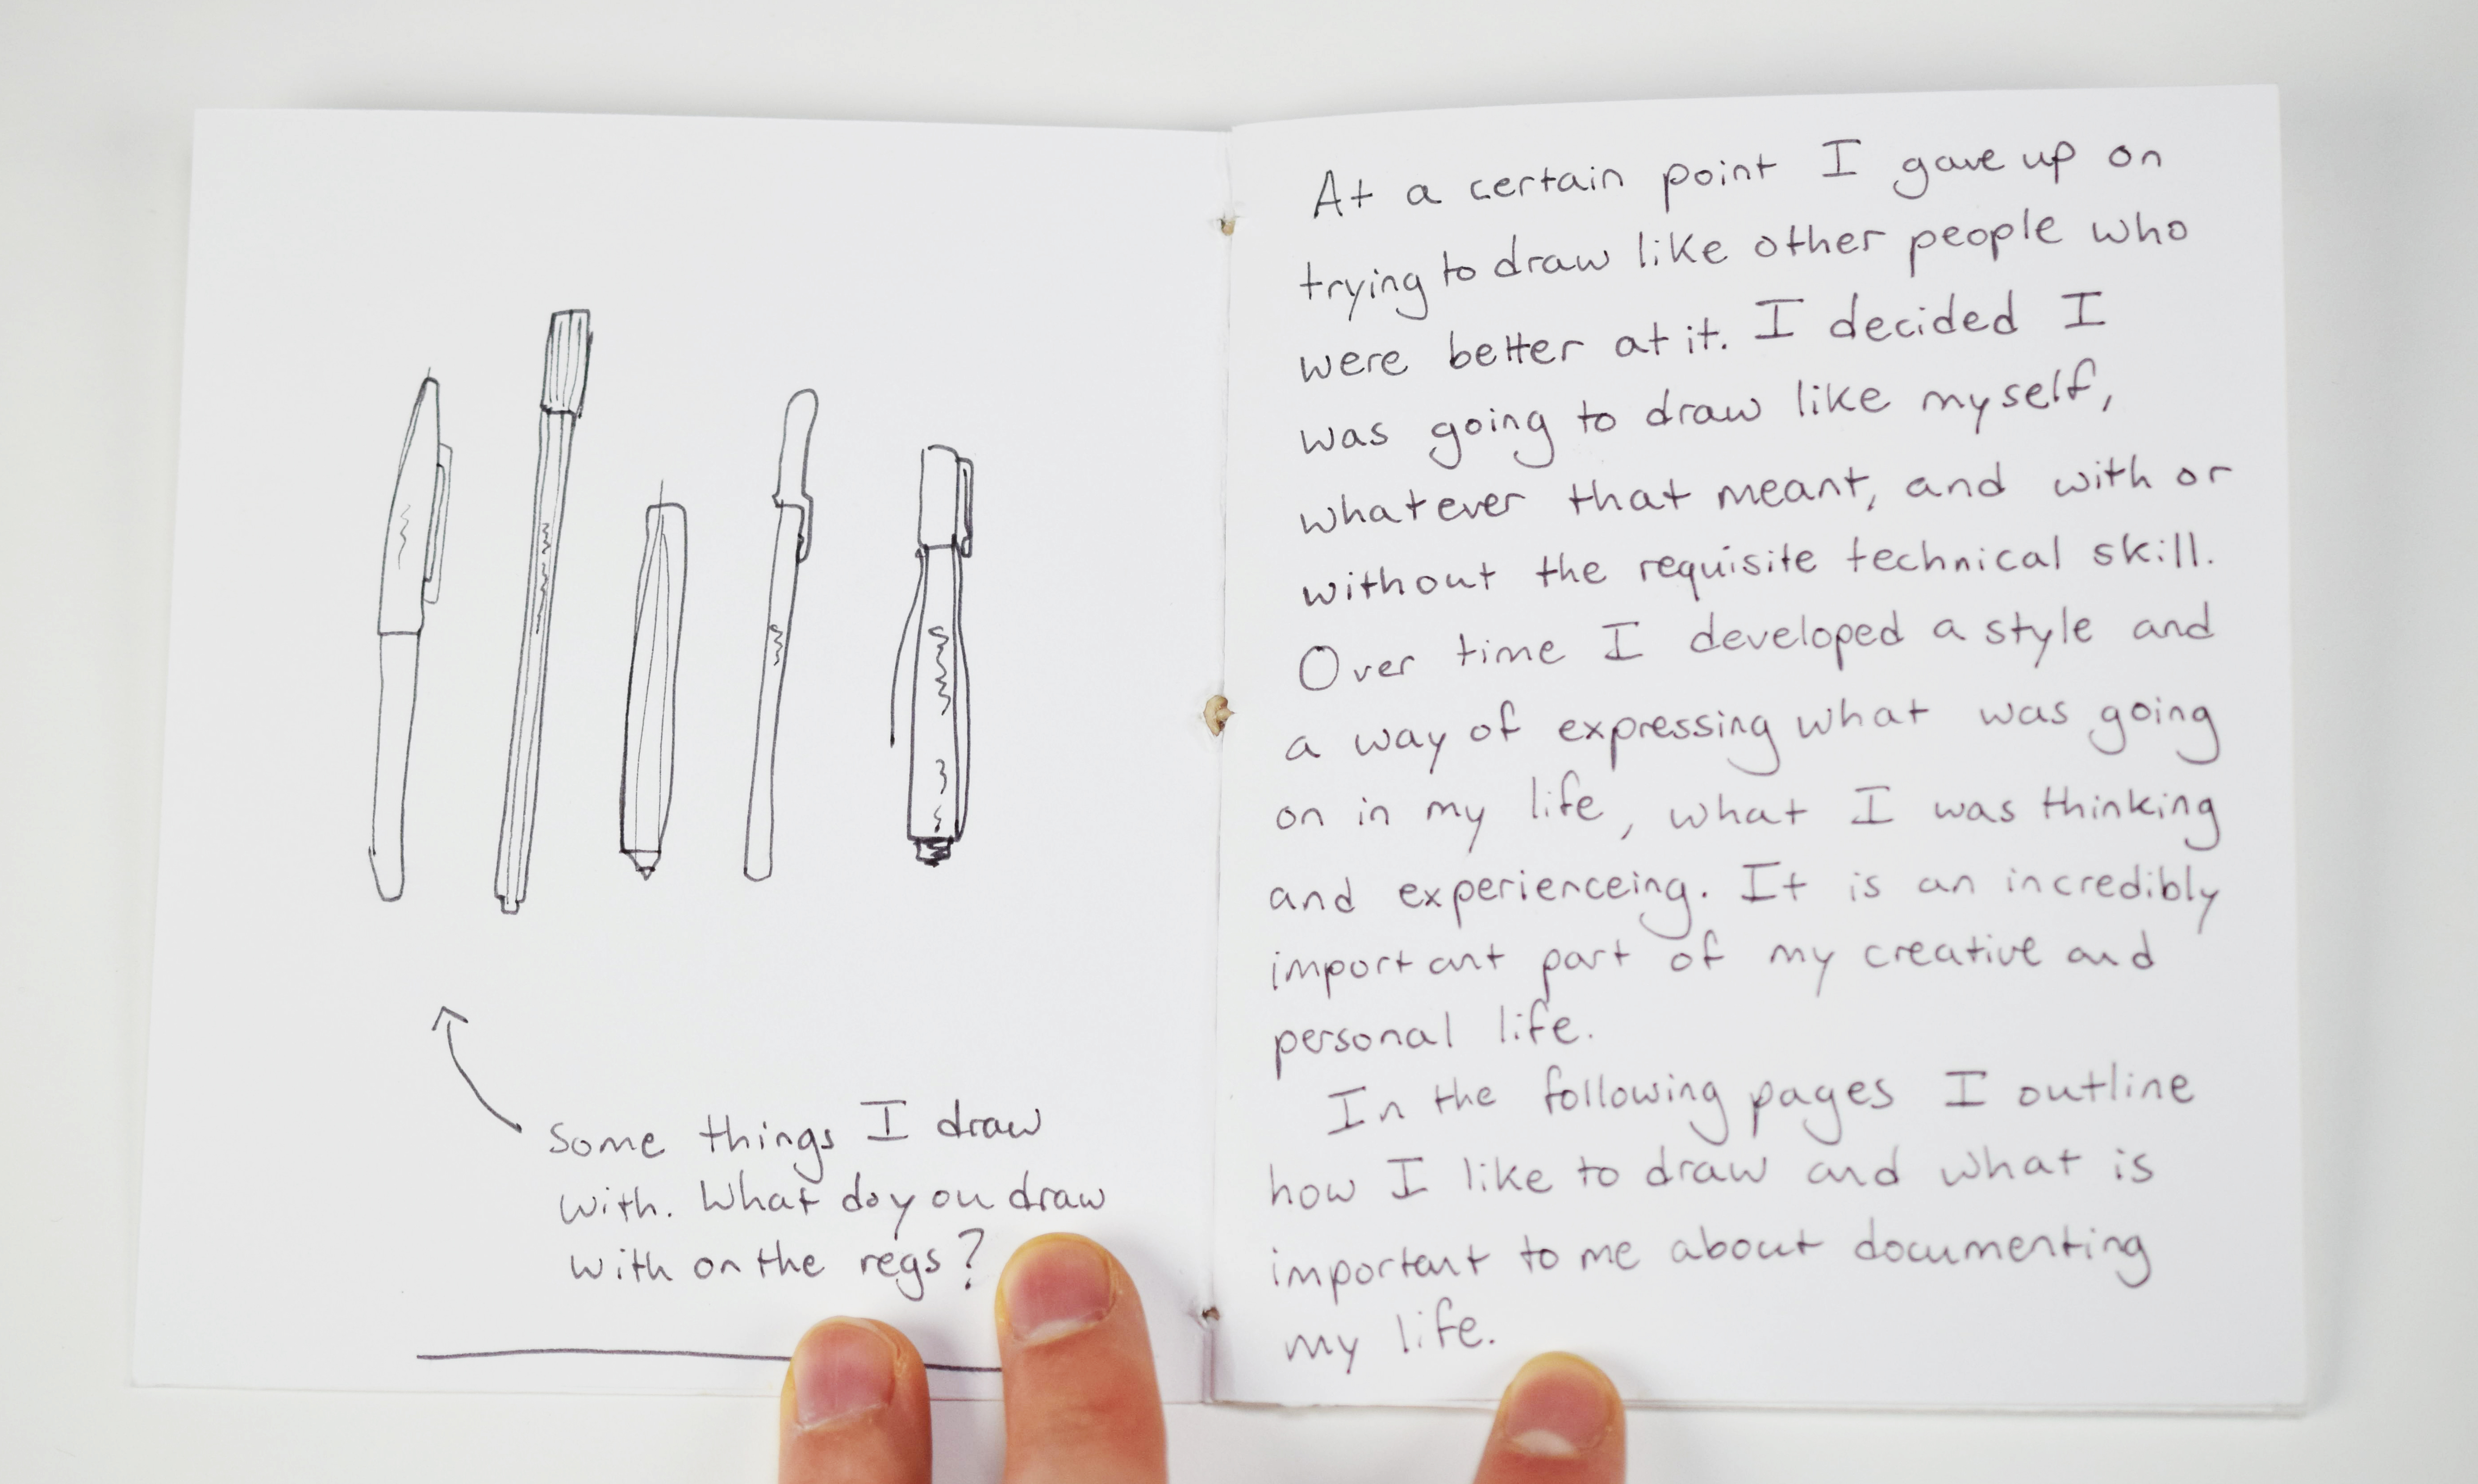 Some things I draw
with. What do you draw
with on the regs?
At a certain point I gave up on
trying to draw like other people who
were better at it. I decided I
was going to draw like myself,
whatever that meant, and with or
without the requisite technical skill.
Over time I developed a style and
a way of expressing what was going
on in my life, what I was thinking
and experienceing. It is an incredibly
important part of my creative and
personal life.
In the following pages I outline
how I like to draw and what is
important to me about documenting
my life.